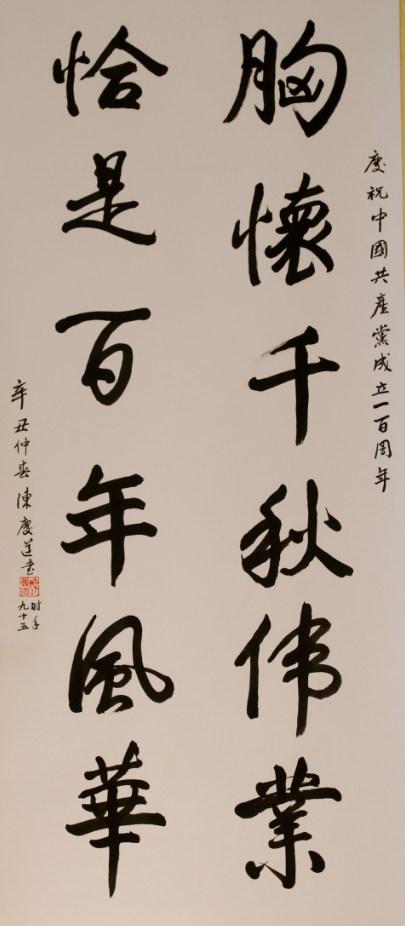 慶祝中國共產黨成立一百周年
胸懷千秋伟業
恰是百年風華
辛丑仲春陳慶莲书
时年
九十五